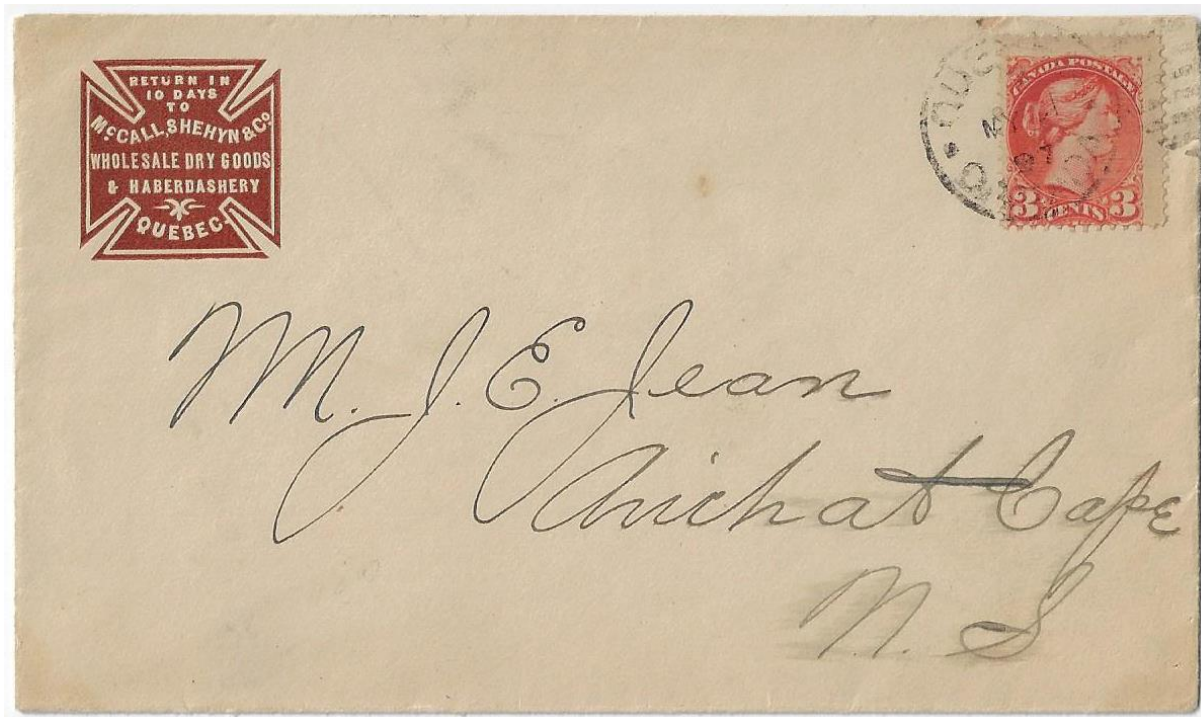 RETURN IN
10 DAYS
TO
McCALL, SHEHYN & Co
WHOLESALE DRY GOODS
& HABERDASHERY
QUEBEC
CANADA POSTAGE
3 CENTS 3
M. J. E. Jean
Arichat Cape
N. S